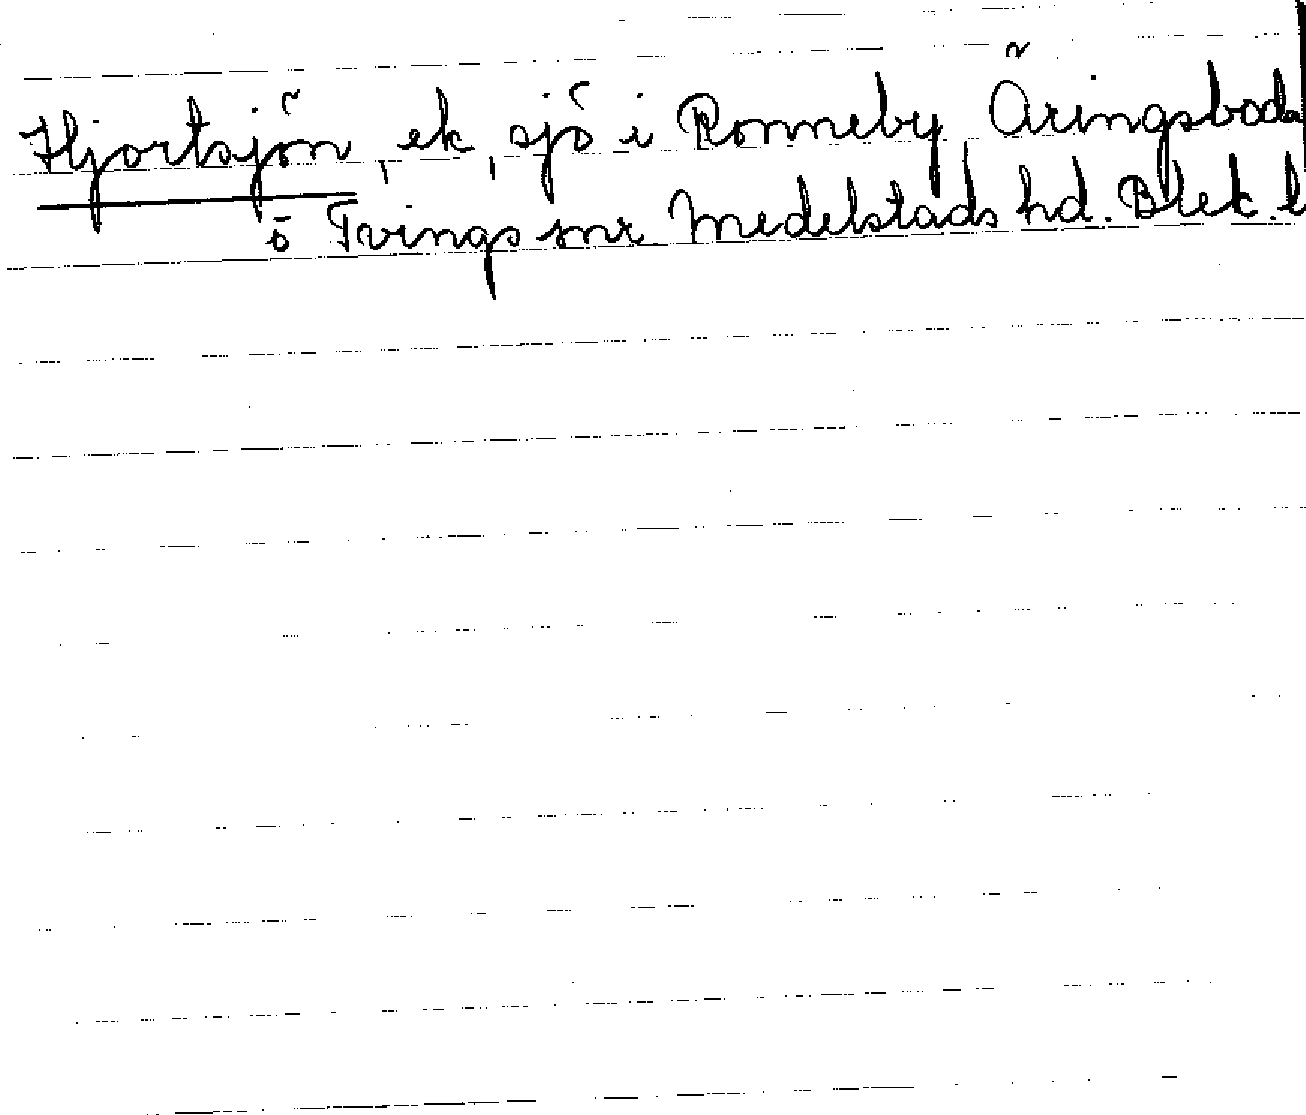 Hjortsjön, ek, sjö i Ronneby Öringsboda
o Tvings snr Medelstads hd. Blek. l